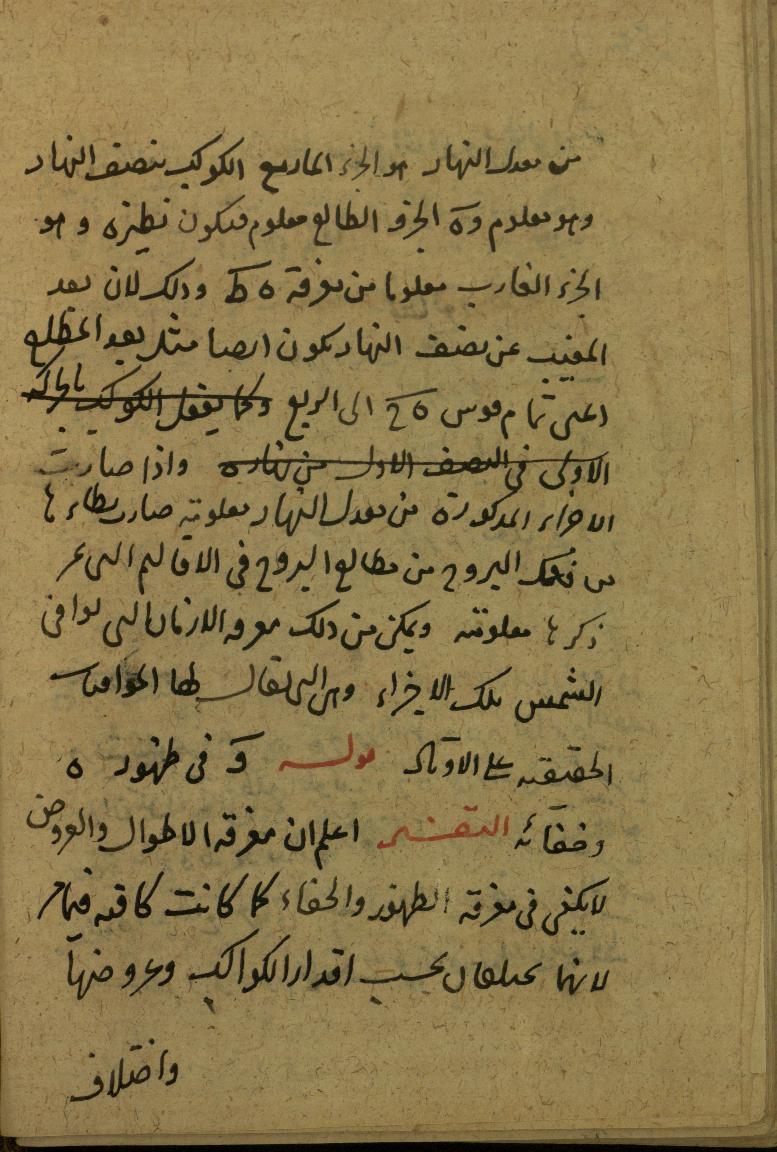 من معدل النهار هو الجزء المار مع الكوكب بنصف النهار
وهو معلوم و هَ الجزء الطالع معلوم فيكون نظيره وهو
الجزء الغارب معلوما من معرفة ه ط وذلك لان بعد
المغيب عن نصف النهار يكون ايضا مثل بعد المطلع
اعنى تمام قوس ه ح الى الربع وكما يفعل الكوكب بالحركة
الاولى في النصف الاول من نهاره واذا صارت
الاجزاء المذكورة من معدل النهار معلومة صارت نظائرها
من فلك البروج من مطالع البروج في الاقاليم التى مر
ذكرها معلومة ويمكن من ذلك معرفة الازمان التى توافى
الشمس بتلك الاجزاء وهى التى يقال لها الموافيات
الحقيقية على الاوتاد قوله و في ظهوره
وخفائه التفسير اعلم ان معرفة الاطوال والعروض
لا يكفى في معرفة الظهور والخفاء كما كانت كافية فيما مر
لانهما يختلفان بحسب اقدار الكواكب وعروضها
واختلاف